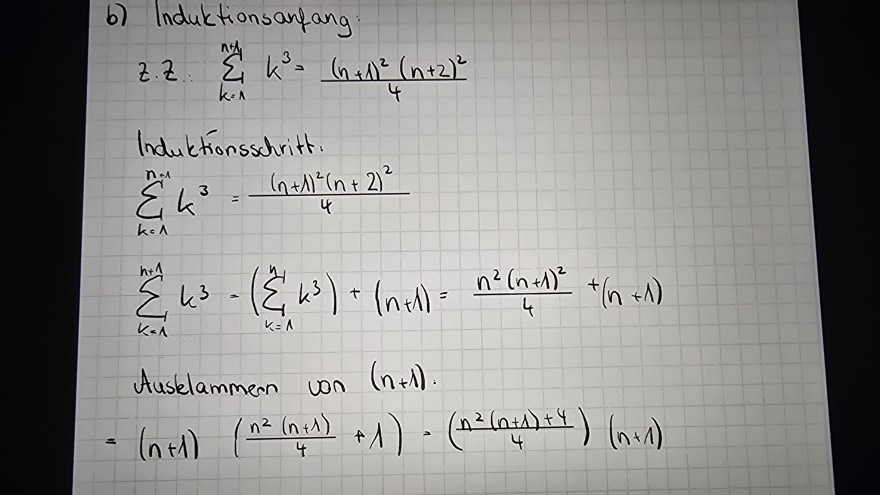 b) Induktionsanfang:
z.z.: \sum_{k=1}^{n+1} k^3 = \frac{(n+1)^2 (n+2)^2}{4}
Induktionsschritt:
\sum_{k=1}^{n+1} k^3 = \frac{(n+1)^2 (n+2)^2}{4}
\sum_{k=1}^{n+1} k^3 = (\sum_{k=1}^{n} k^3) + (n+1) = \frac{n^2 (n+1)^2}{4} + (n+1)
Ausklammern von (n+1):
= (n+1) (\frac{n^2 (n+1)}{4} + 1) = (\frac{n^2 (n+1) + 4}{4}) (n+1)